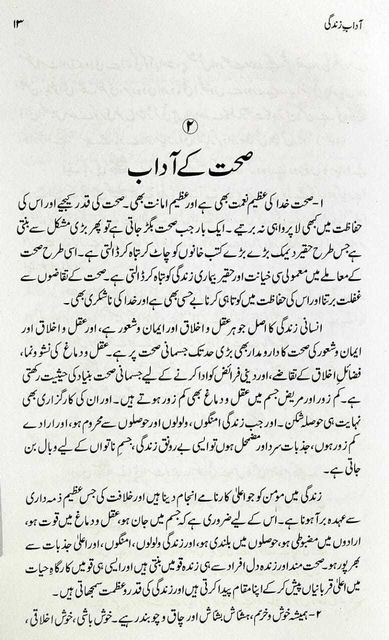 آدابِ زندگی
۱۳
۲
صحت کے آداب
۱- صحت خدا کی عظیم نعمت بھی ہے اور عظیم امانت بھی۔ صحت کی قدر کیجیے اور اس کی
حفاظت میں کبھی لاپرواہی نہ برتیے۔ ایک بار جب صحت بگڑ جاتی ہے تو پھر بڑی مشکل سے بنتی
ہے جس طرح حقیر دیمک بڑے بڑے کتب خانوں کو چاٹ کر تباہ کر ڈالتی ہے۔ اسی طرح صحت
کے معاملے میں معمولی سی خیانت اور حقیر بیماری زندگی کو تباہ کر ڈالتی ہے۔ صحت کے تقاضوں سے
غفلت برتنا اور اس کی حفاظت میں کوتاہی کرنا بے حسی بھی ہے اور خدا کی ناشکری بھی۔
انسانی زندگی کا اصل جوہر عقل و اخلاق اور ایمان و شعور ہے، اور عقل و اخلاق اور
ایمان و شعور کی صحت کا دارومدار بھی بڑی حد تک جسمانی صحت پر ہے۔ عقل و دماغ کی نشوونما،
فضائلِ اخلاق کے تقاضے، اور دینی فرائض کو ادا کرنے کے لیے جسمانی صحت بنیاد کی حیثیت رکھتی
ہے۔ کمزور اور مریض جسم میں عقل و دماغ بھی کمزور ہوتے ہیں۔ اور ان کی کارگزاری بھی
نہایت ہی حوصلہ شکن۔ اور جب زندگی امنگوں، ولولوں اور حوصلوں سے محروم ہو، اور ارادے
کمزور ہوں، جذبات سرد اور مضمحل ہوں تو ایسی بے رونق زندگی، جسمِ ناتواں کے لیے وبال بن
جاتی ہے۔
زندگی میں مؤمن کو جو اعلیٰ کارنامے انجام دینا ہیں اور خلافت کی جس عظیم ذمہ داری
سے عہدہ برآ ہونا ہے۔ اس کے لیے ضروری ہے کہ جسم میں جان ہو، عقل و دماغ میں قوت ہو،
ارادوں میں مضبوطی ہو، حوصلوں میں بلندی ہو، اور زندگی ولولوں، امنگوں، اور اعلیٰ جذبات سے
بھرپور ہو۔ صحت مند اور زندہ دل افراد سے ہی زندہ قومیں بنتی ہیں اور ایسی ہی قومیں کارگاہِ حیات
میں اعلیٰ قربانیاں پیش کر کے اپنا مقام پیدا کرتی ہیں اور زندگی کی قدر و عظمت سمجھاتی ہیں۔
۲- ہمیشہ خوش و خرم، ہشاش بشاش اور چاق و چوبند رہیے۔ خوش باشی، خوش اخلاقی،